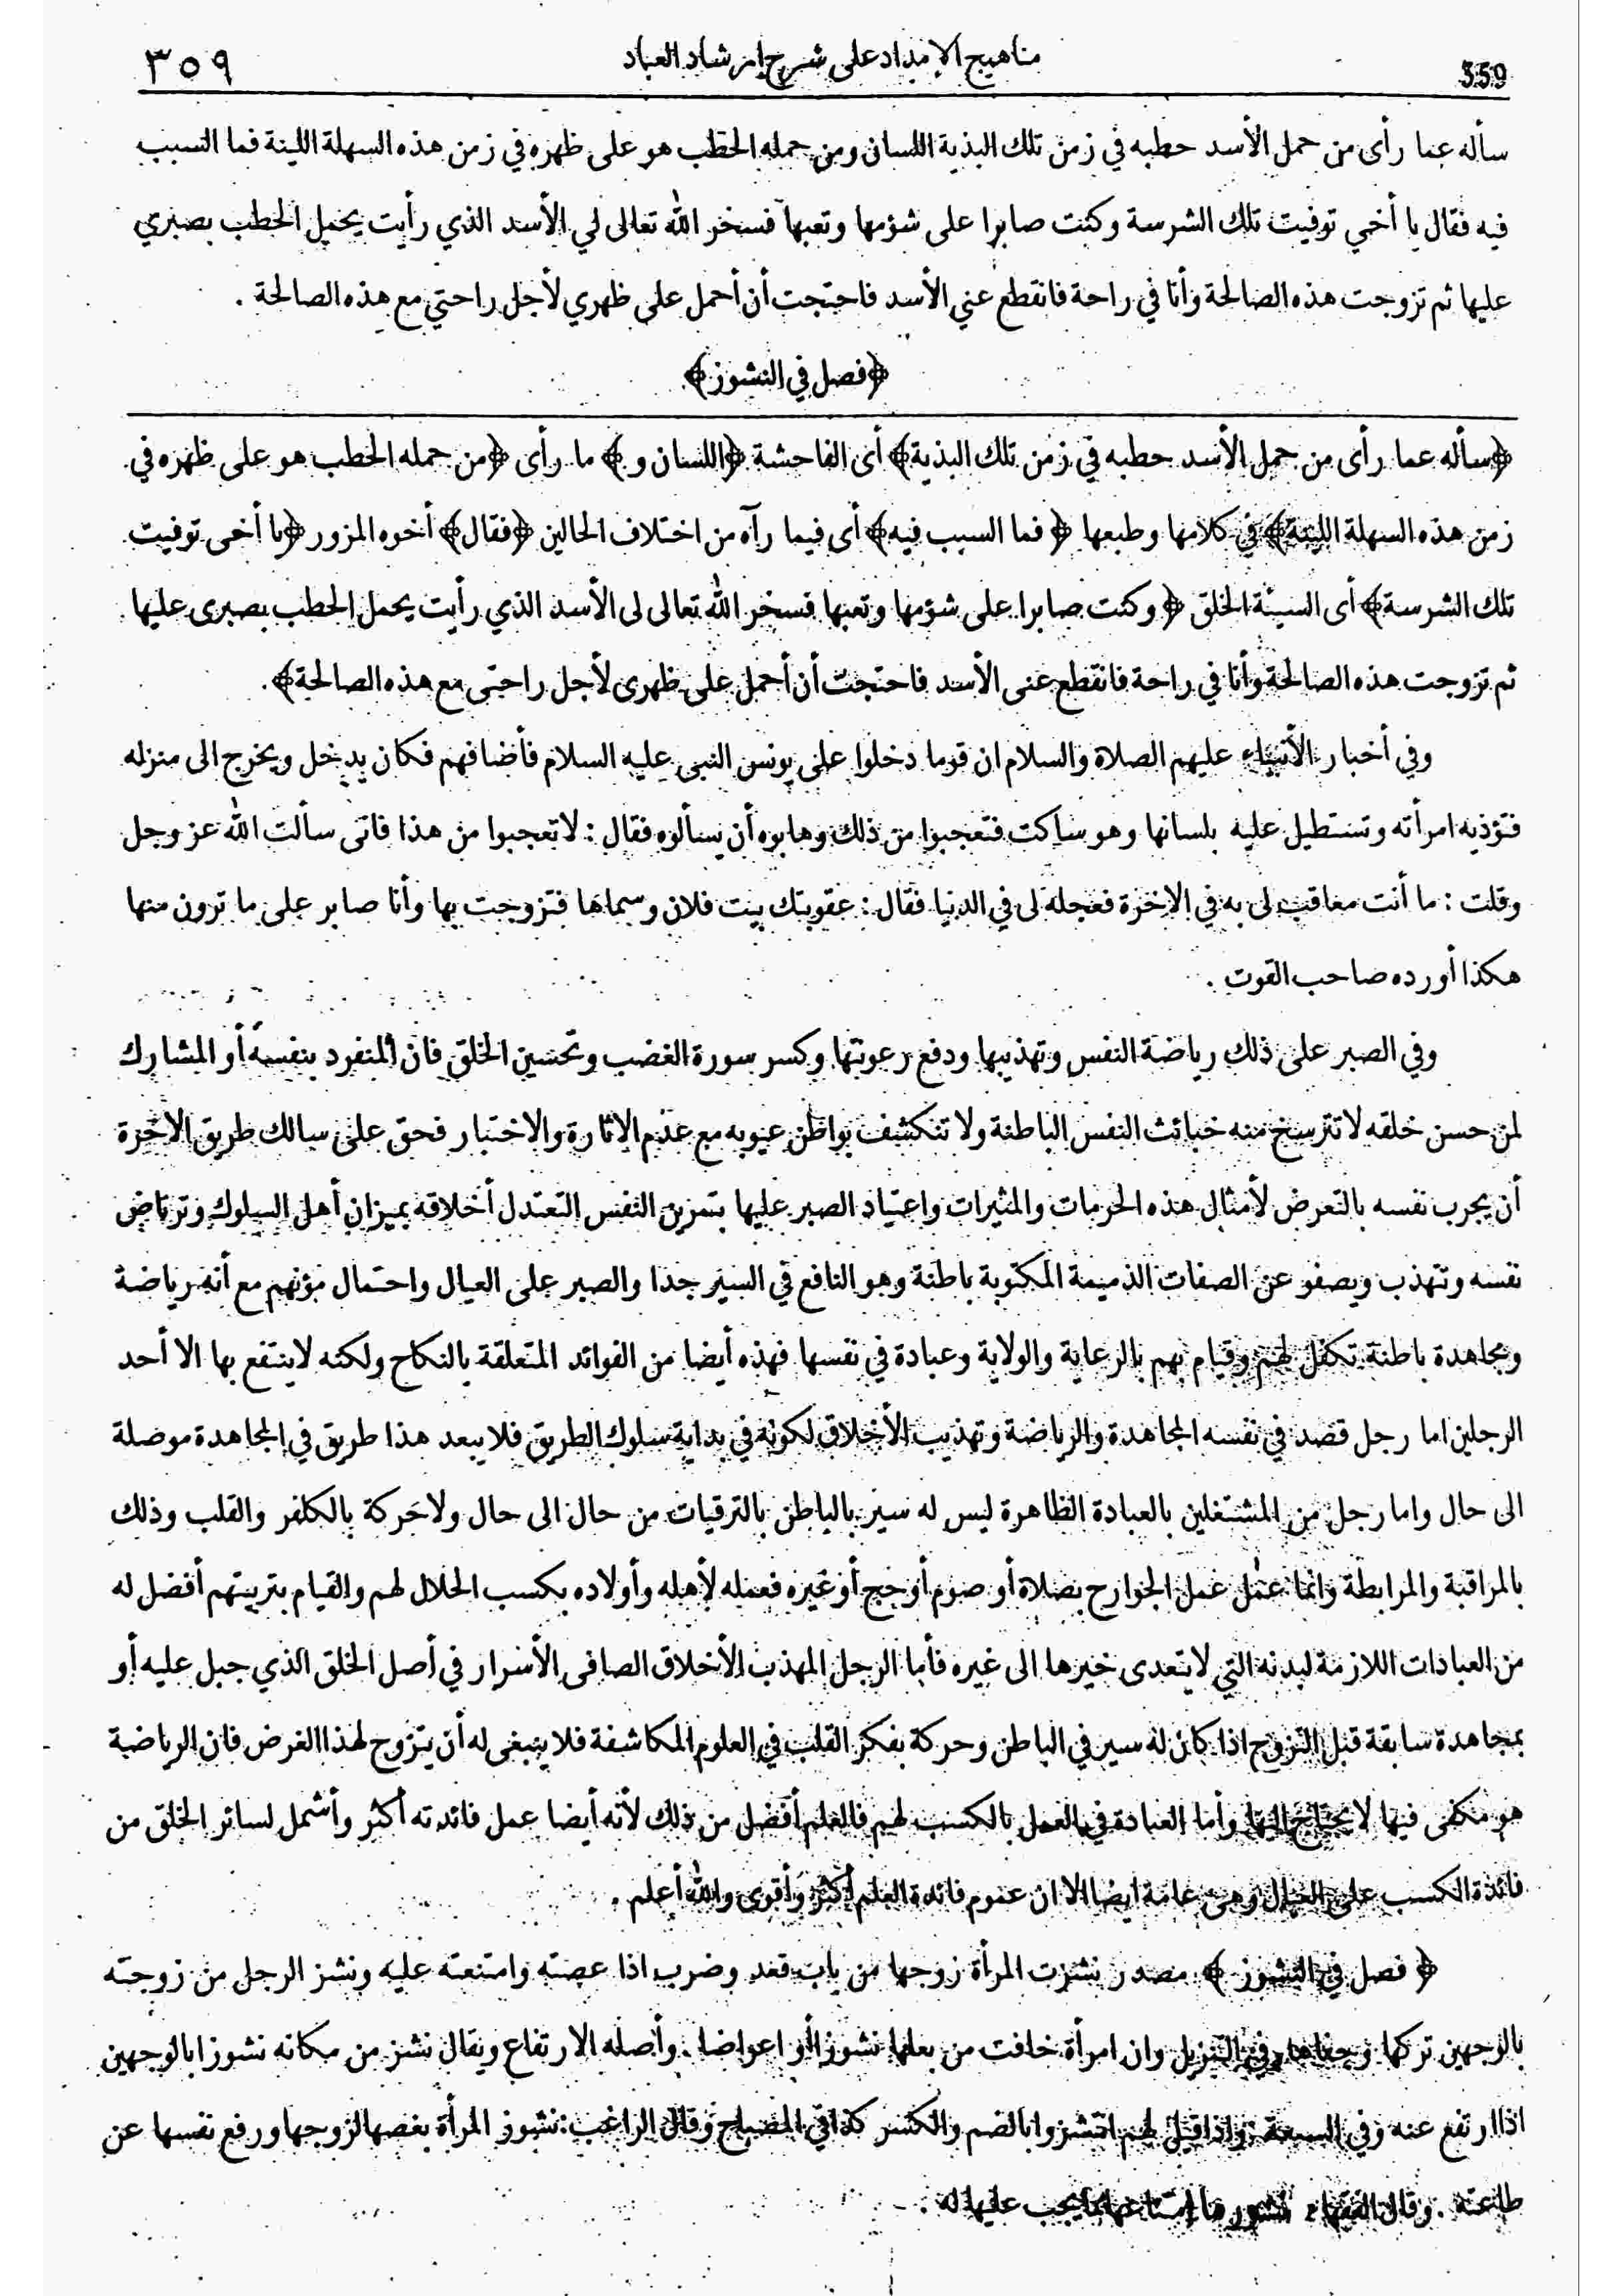 359
مناهيج الإمداد على شرح إرشاد العباد
٣٥٩
سأله عما رأى من حمل الأسد حطبه في زمن تلك البذية اللسان ومن حمله الحطب هو على ظهره في زمن هذه السهلة اللينة فما السبب
فيه فقال يا أخي توفيت تلك الشرسة وكنت صابرا على شؤمها وتعبها فسخر الله تعالى لي الأسد الذي رأيت يحمل الحطب بصبري
عليها ثم تزوجت هذه الصالحة وأنا في راحة فانقطع عني الأسد فاحتجت أن أحمل على ظهري لأجل راحتي مع هذه الصالحة .
﴿فصل في النشوز﴾
﴿سأله عما رأى من حمل الأسد حطبه في زمن تلك البذية﴾ أى الفاحشة ﴿اللسان و﴾ ما رأى ﴿من حمله الحطب هو على ظهره في
زمن هذه السهلة اللينة﴾ في كلامها وطبعها ﴿فما السبب فيه﴾ أى فيما رآه من اختلاف الحالين ﴿فقال﴾ أخوه المزور ﴿يا أخى توفيت
تلك الشرسة﴾ أى السيئة الخلق ﴿وكنت صابرا على شؤمها وتعبها فسخر الله تعالى لى الأسد الذي رأيت يحمل الحطب بصبرى عليها
ثم تزوجت هذه الصالحة وأنا في راحة فانقطع عنى الأسد فاحتجت أن أحمل على ظهرى لأجل راحتى مع هذه الصالحة﴾.
وفي أخبار الأنبياء عليهم الصلاة والسلام ان قوما دخلوا على يونس النبى عليه السلام فأضافهم فكان يدخل ويخرج الى منزله
فتؤذيه امرأته وتستطيل عليه بلسانها وهو ساكت فتعجبوا من ذلك وهابوه أن يسألوه فقال : لا تعجبوا من هذا فانى سألت الله عز وجل
وقلت : ما أنت معاقب لى به في الاخرة فعجله لى في الدنيا فقال : عقوبتك بنت فلان وسماها فتزوجت بها وأنا صابر على ما ترون منها
هكذا أورده صاحب القوت .
وفي الصبر على ذلك رياضة النفس وتهذيبها ودفع رعونتها وكسر سورة الغضب وتحسين الخلق فان المنفرد بنفسه أو المشارك
لمن حسن خلقه لا تترسخ منه خبائث النفس الباطنة ولا تنكشف بواطن عيوبه مع عدم الاثارة والاختبار فحق على سالك طريق الاخرة
أن يجرب نفسه بالتعرض لأمثال هذه الحرمات والمثيرات واعتياد الصبر عليها بتمرين النفس التعتدل أخلاقه بميزان أهل السلوك وترتاض
نفسه وتتهذب ويصفو عن الصفات الذميمة المكتوبة باطنة وهو النافع في السير جدا والصبر على العيال واحتمال مؤنهم مع أنه رياضة
ومجاهدة باطنة تكفل لهم وقيام بهم بالرعاية والولاية وعبادة في نفسها فهذه أيضا من الفوائد المتعلقة بالنكاح ولكنه لا ينتفع بها الا أحد
الرجلين اما رجل قصد في نفسه المجاهدة والرياضة وتهذيب الأخلاق لكونه في بداية سلوك الطريق فلا يبعد هذا طريق في المجاهدة موصلة
الى حال واما رجل من المشتغلين بالعبادة الظاهرة ليس له سير بالباطن بالترقيات من حال الى حال ولا حركة بالكلفر والقلب وذلك
بالمراقبة والمرابطة وانما عمل عمل الجوارح بصلاة أو صوم أو حج أو غيره فعمله لأهله وأولاده بكسب الحلال لهم والقيام بتربيتهم أفضل له
من العبادات اللازمة لبدنه التي لا يتعدى خيرها الى غيره فأما الرجل المهذب الأخلاق الصافى الأسرار في أصل الخلق الذي جبل عليه أو
بمجاهدة سابقة قبل التزوج اذا كان له سير في الباطن وحركة بفكر القلب في العلوم المكاشفة فلا ينبغى له أن يتزوج لهذا الغرض فان الرياضة
هو مكفى فيها لا يحتاج اليها وأما العبادة في العمل بالكسب لهم فالعلم أفضل من ذلك لأنه أيضا عمل فائدته أكثر وأشمل لسائر الخلق من
فائدة الكسب على العيال وهى عامة ايضا الا ان عموم فائدة العلم أكثر وأقوى والله أعلم .
﴿فصل في النشوز﴾ مصدر نشزت المرأة زوجها من باب قعد وضرب اذا عصته وامتنعته عليه ونشز الرجل من زوجته
بالوجهين تركها وجفاها وفي التنزيل وان امرأة خافت من بعلها نشوزا أو اعراضا . وأصله الارتفاع ويقال نشز من مكانه نشوزا بالوجهين
اذا ارتفع عنه وفي السبعة واذا قيل لهم انشزوا بالضم والكسر كذا في المصباح وقال الراغب : نشوز المرأة بغضها لزوجها ورفع نفسها عن
طاعته . وقال الفقهاء نشوزها امتناعها مما يجب عليها له .